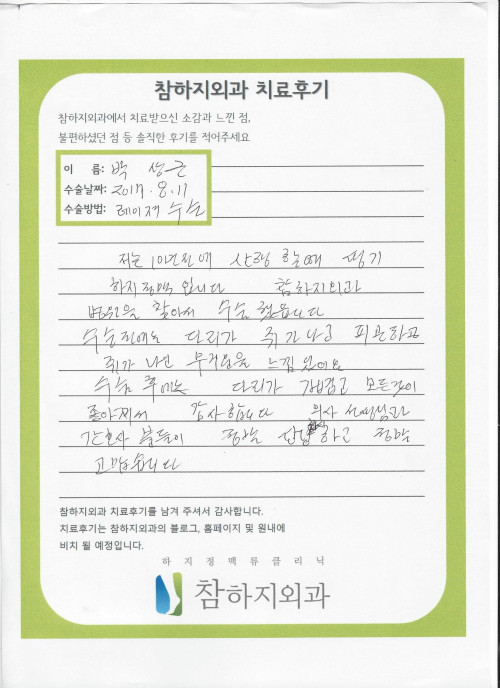 참하지외과 치료후기
참하지외과에서 치료받으신 소감과 느낀 점,
불편하셨던 점 등 솔직한 후기를 적어주세요
이 름: 박 상근
수술날짜: 2017. 8. 11
수술방법: 레이져 수술
저는 10년전에
하지정맥 입니다 참하지외과
병원을 찾아서 수술 했읍니다
수술전에는 다리가 쥐가나고 피곤하고
쥐가 나선 무거움을 느낌 있어요
수술 후에는 다리가 가볍고 모든것이
좋아져서 감사합니다 의사 선생님과
간호사 분들이 정말 하고 정말
고맙습니다
참하지외과 치료후기를 남겨 주셔서 감사합니다.
치료후기는 참하지외과의 블로그, 홈페이지 및 원내에
비치 될 예정입니다.
하지정맥류클리닉
참하지외과